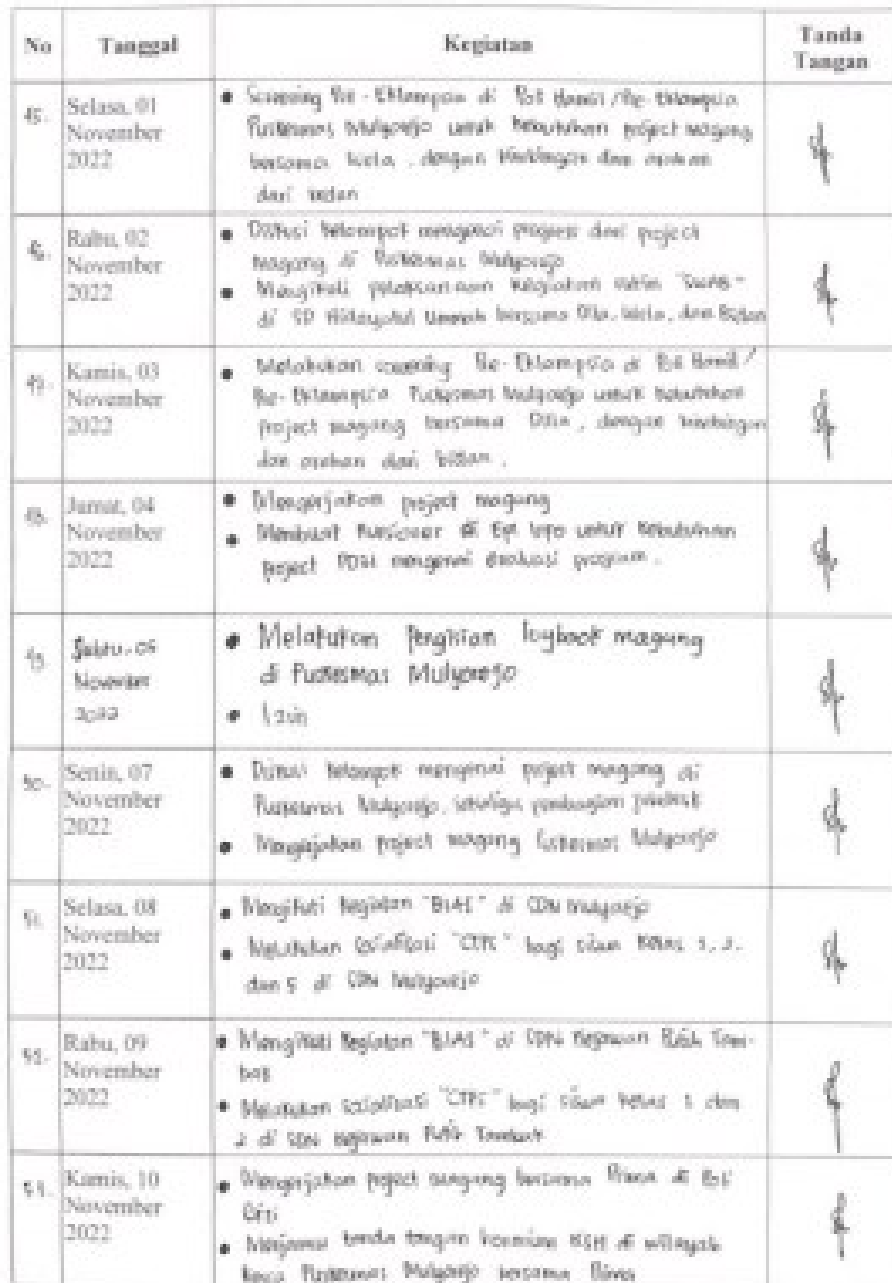 No Tanggal Kegiatan Tanda Tangan
45. Selasa, 01 November 2022
• Screening Pre-Eklampsia di Poli Hamil/Pre-Eklampsia
Puskesmas Mulyorejo untuk kebutuhan project magang
bersama Kela, dengan bimbingan dan arahan
dari bidan
46. Rabu, 02 November 2022
• Diskusi kelompok mengenai progress dari project
magang di Puskesmas Mulyorejo
• Mengikuti pelaksanaan kegiatan rutin
di SD Hidayatul Ummah bersama dan Bidan
47. Kamis, 03 November 2022
• Melakukan screening Pre-Eklampsia di Poli Hamil/
Pre-Eklampsia Puskesmas Mulyorejo untuk kebutuhan
project magang bersama, dengan bimbingan
dan arahan dari bidan.
48. Jumat, 04 November 2022
• Mengerjakan project magang
• Membuat kuesioner di Epi Info untuk kebutuhan
project mengenai evaluasi program.
49. Sabtu, 05 November 2022
• Melakukan Pengisian logbook magang
di Puskesmas Mulyorejo
• Izin
50. Senin, 07 November 2022
• Diskusi kelompok mengenai project magang di
Puskesmas Mulyorejo, sekaligus pembagian
• Mengerjakan project magang Puskesmas Mulyorejo
51. Selasa, 08 November 2022
• Mengikuti kegiatan "BIAS" di SDN Mulyorejo
• Melakukan Sosialisasi "CTPS" bagi siswa kelas 1, 2,
dan 5 di SDN Mulyorejo
52. Rabu, 09 November 2022
• Mengikuti kegiatan "BIAS" di SDN Kejawan Putih Tam-
bak
• Melakukan sosialisasi "CTPS" bagi siswa kelas 1 dan
2 di SDN Kejawan Putih Tambak
Kamis, 10 November 2022
• Mengerjakan project magang bersama Prima di Poli
Gizi
• tanda tangan di wilayah
kerja Puskesmas Mulyorejo bersama